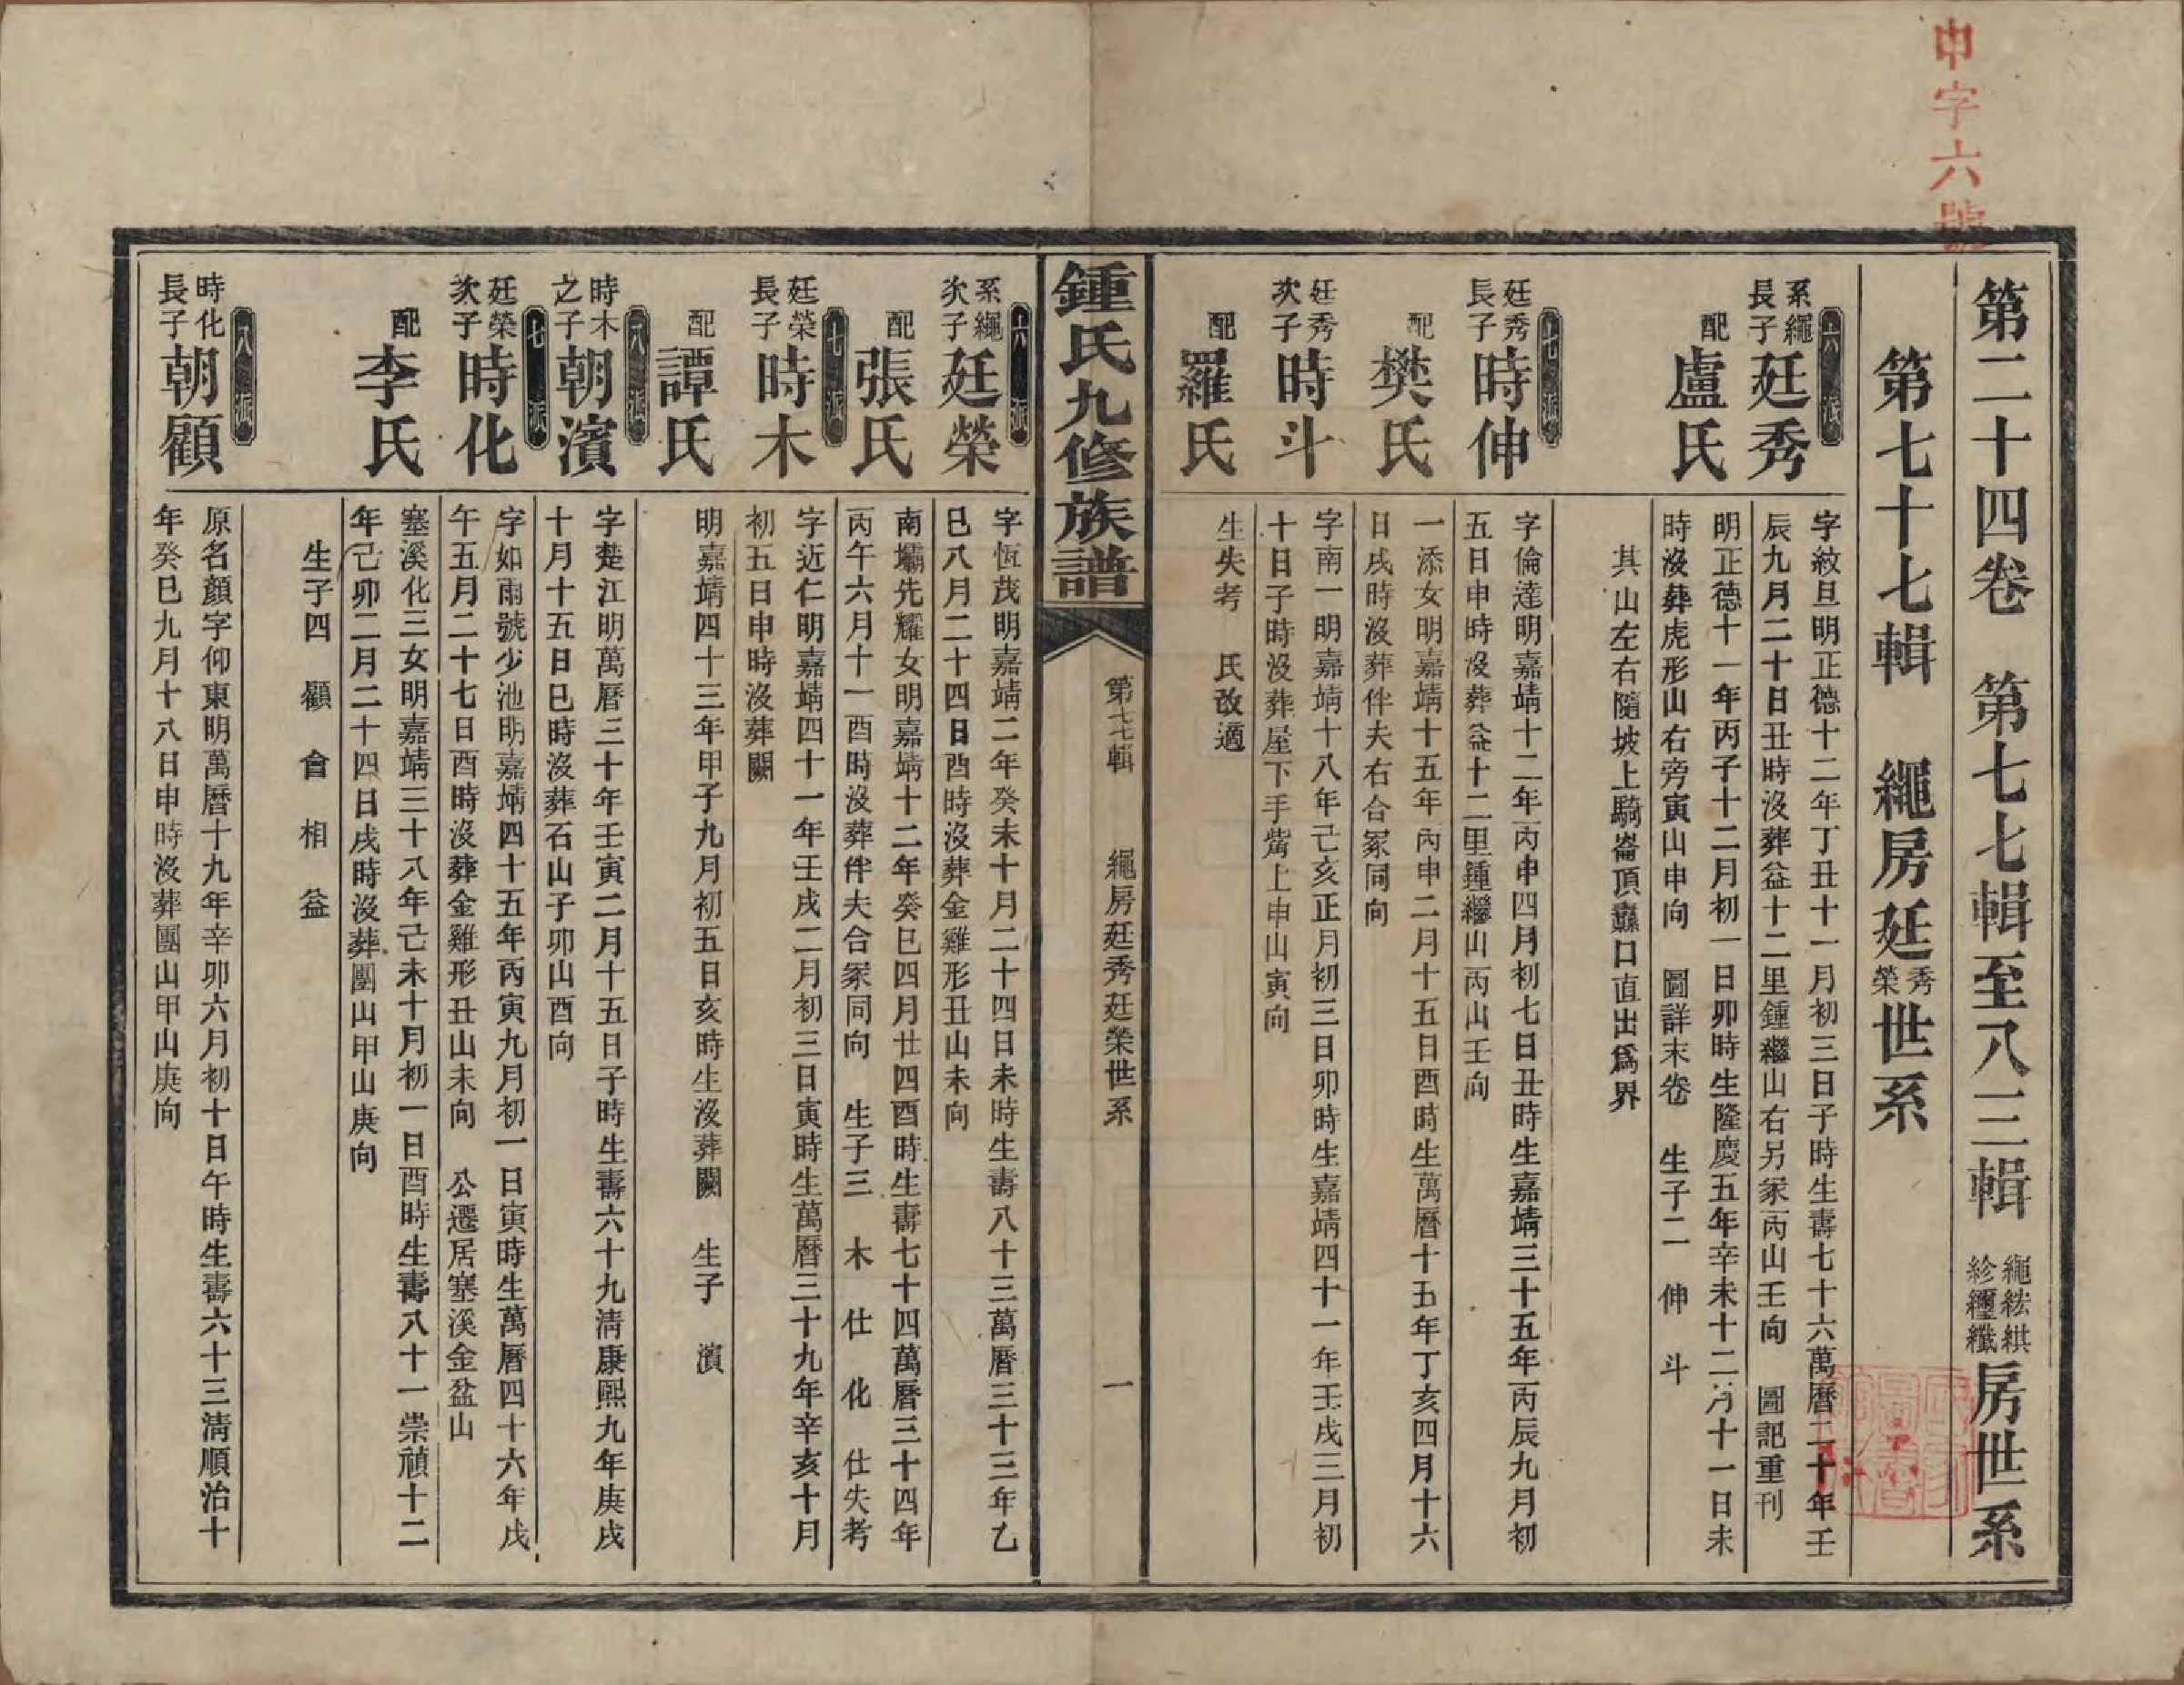 申字六號
第二十四卷　第七七輯至八三輯　繩紘綨紾纙纖房世系
第七十七輯　繩房廷秀榮世系
六派
系繩長子廷秀
字紋旦明正德十二年丁丑十一月初三日子時生壽七十六萬曆二十年壬
辰九月二十日丑時沒葬益十二里鍾繼山右另冢丙山壬向　圖記重刊
配盧氏
明正德十一年丙子十二月初一日卯時生隆慶五年辛未十二月十一日未
時沒葬虎形山右旁寅山申向　圖詳末卷　生子二　伸　斗
其山左右隨坡上騎崙頂驫口直出爲界
七派
廷秀長子時伸
字倫達明嘉靖十二年丙申四月初七日丑時生嘉靖三十五年丙辰九月初
五日申時沒葬益十二里鍾繼山丙山壬向
配樊氏
一添女明嘉靖十五年丙申二月十五日酉時生萬曆十五年丁亥四月十六
日戌時沒葬伴夫右合冢同向
廷秀次子時斗
字南一明嘉靖十八年己亥正月初三日卯時生嘉靖四十一年壬戌三月初
十日子時沒葬屋下手嘴上申山寅向
配羅氏
生失考　氏改適
鍾氏九修族譜
第七七輯　繩房廷秀廷榮世系　一
六派
系繩次子廷榮
字恆茂明嘉靖二年癸未十月二十四日未時生壽八十三萬曆三十三年乙
巳八月二十四日酉時沒葬金雞形丑山未向
配張氏
南壩先耀女明嘉靖十二年癸巳四月廿四酉時生壽七十四萬曆三十四年
丙午六月十一酉時沒葬伴夫合冢同向　生子三　木　仕　化　仕失考
七派
廷榮長子時木
字近仁明嘉靖四十一年壬戌二月初三日寅時生萬曆三十九年辛亥十月
初五日申時沒葬闕
配譚氏
明嘉靖四十三年甲子九月初五日亥時生沒葬闕　生子　濱
八派
時木之子朝濱
字楚江明萬曆三十年壬寅二月十五日子時生壽六十九清康熙九年庚戌
十月十五日巳時沒葬石山子卯山酉向
七派
廷榮次子時化
字如雨號少池明嘉靖四十五年丙寅九月初一日寅時生萬曆四十六年戊
午五月二十七日酉時沒葬金雞形丑山未向　公遷居塞溪金盆山
配李氏
塞溪化三女明嘉靖三十八年己未十月初一日酉時生壽八十一崇禎十二
年己卯二月二十四日戌時沒葬團山甲山庚向
生子四　顧　會　相　益
八派
時化長子朝顧
原名顏字仰東明萬曆十九年辛卯六月初十日午時生壽六十三清順治十
年癸巳九月十八日申時沒葬團山甲山庚向